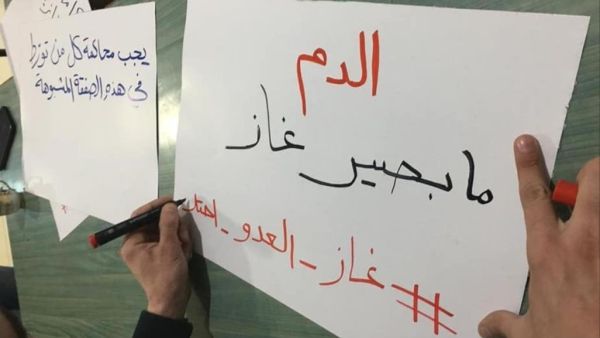 يجب محاكمة كل من تورط
في هذه الصفقة المشبوهة
الدم
ما بصير غاز
#غاز_العدو_احتل